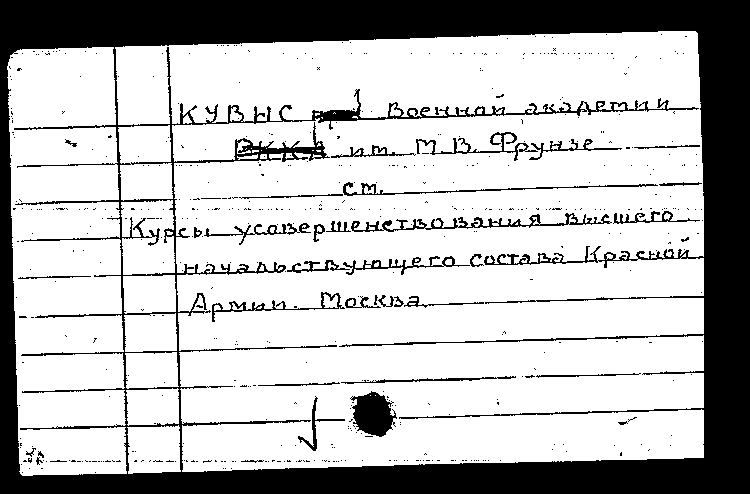 КУВНС Военной академии
РККА им. М.В. Фрунзе
см.
Курсы усовершенствования высшего
начальствующего состава Красной
Армии. Москва.